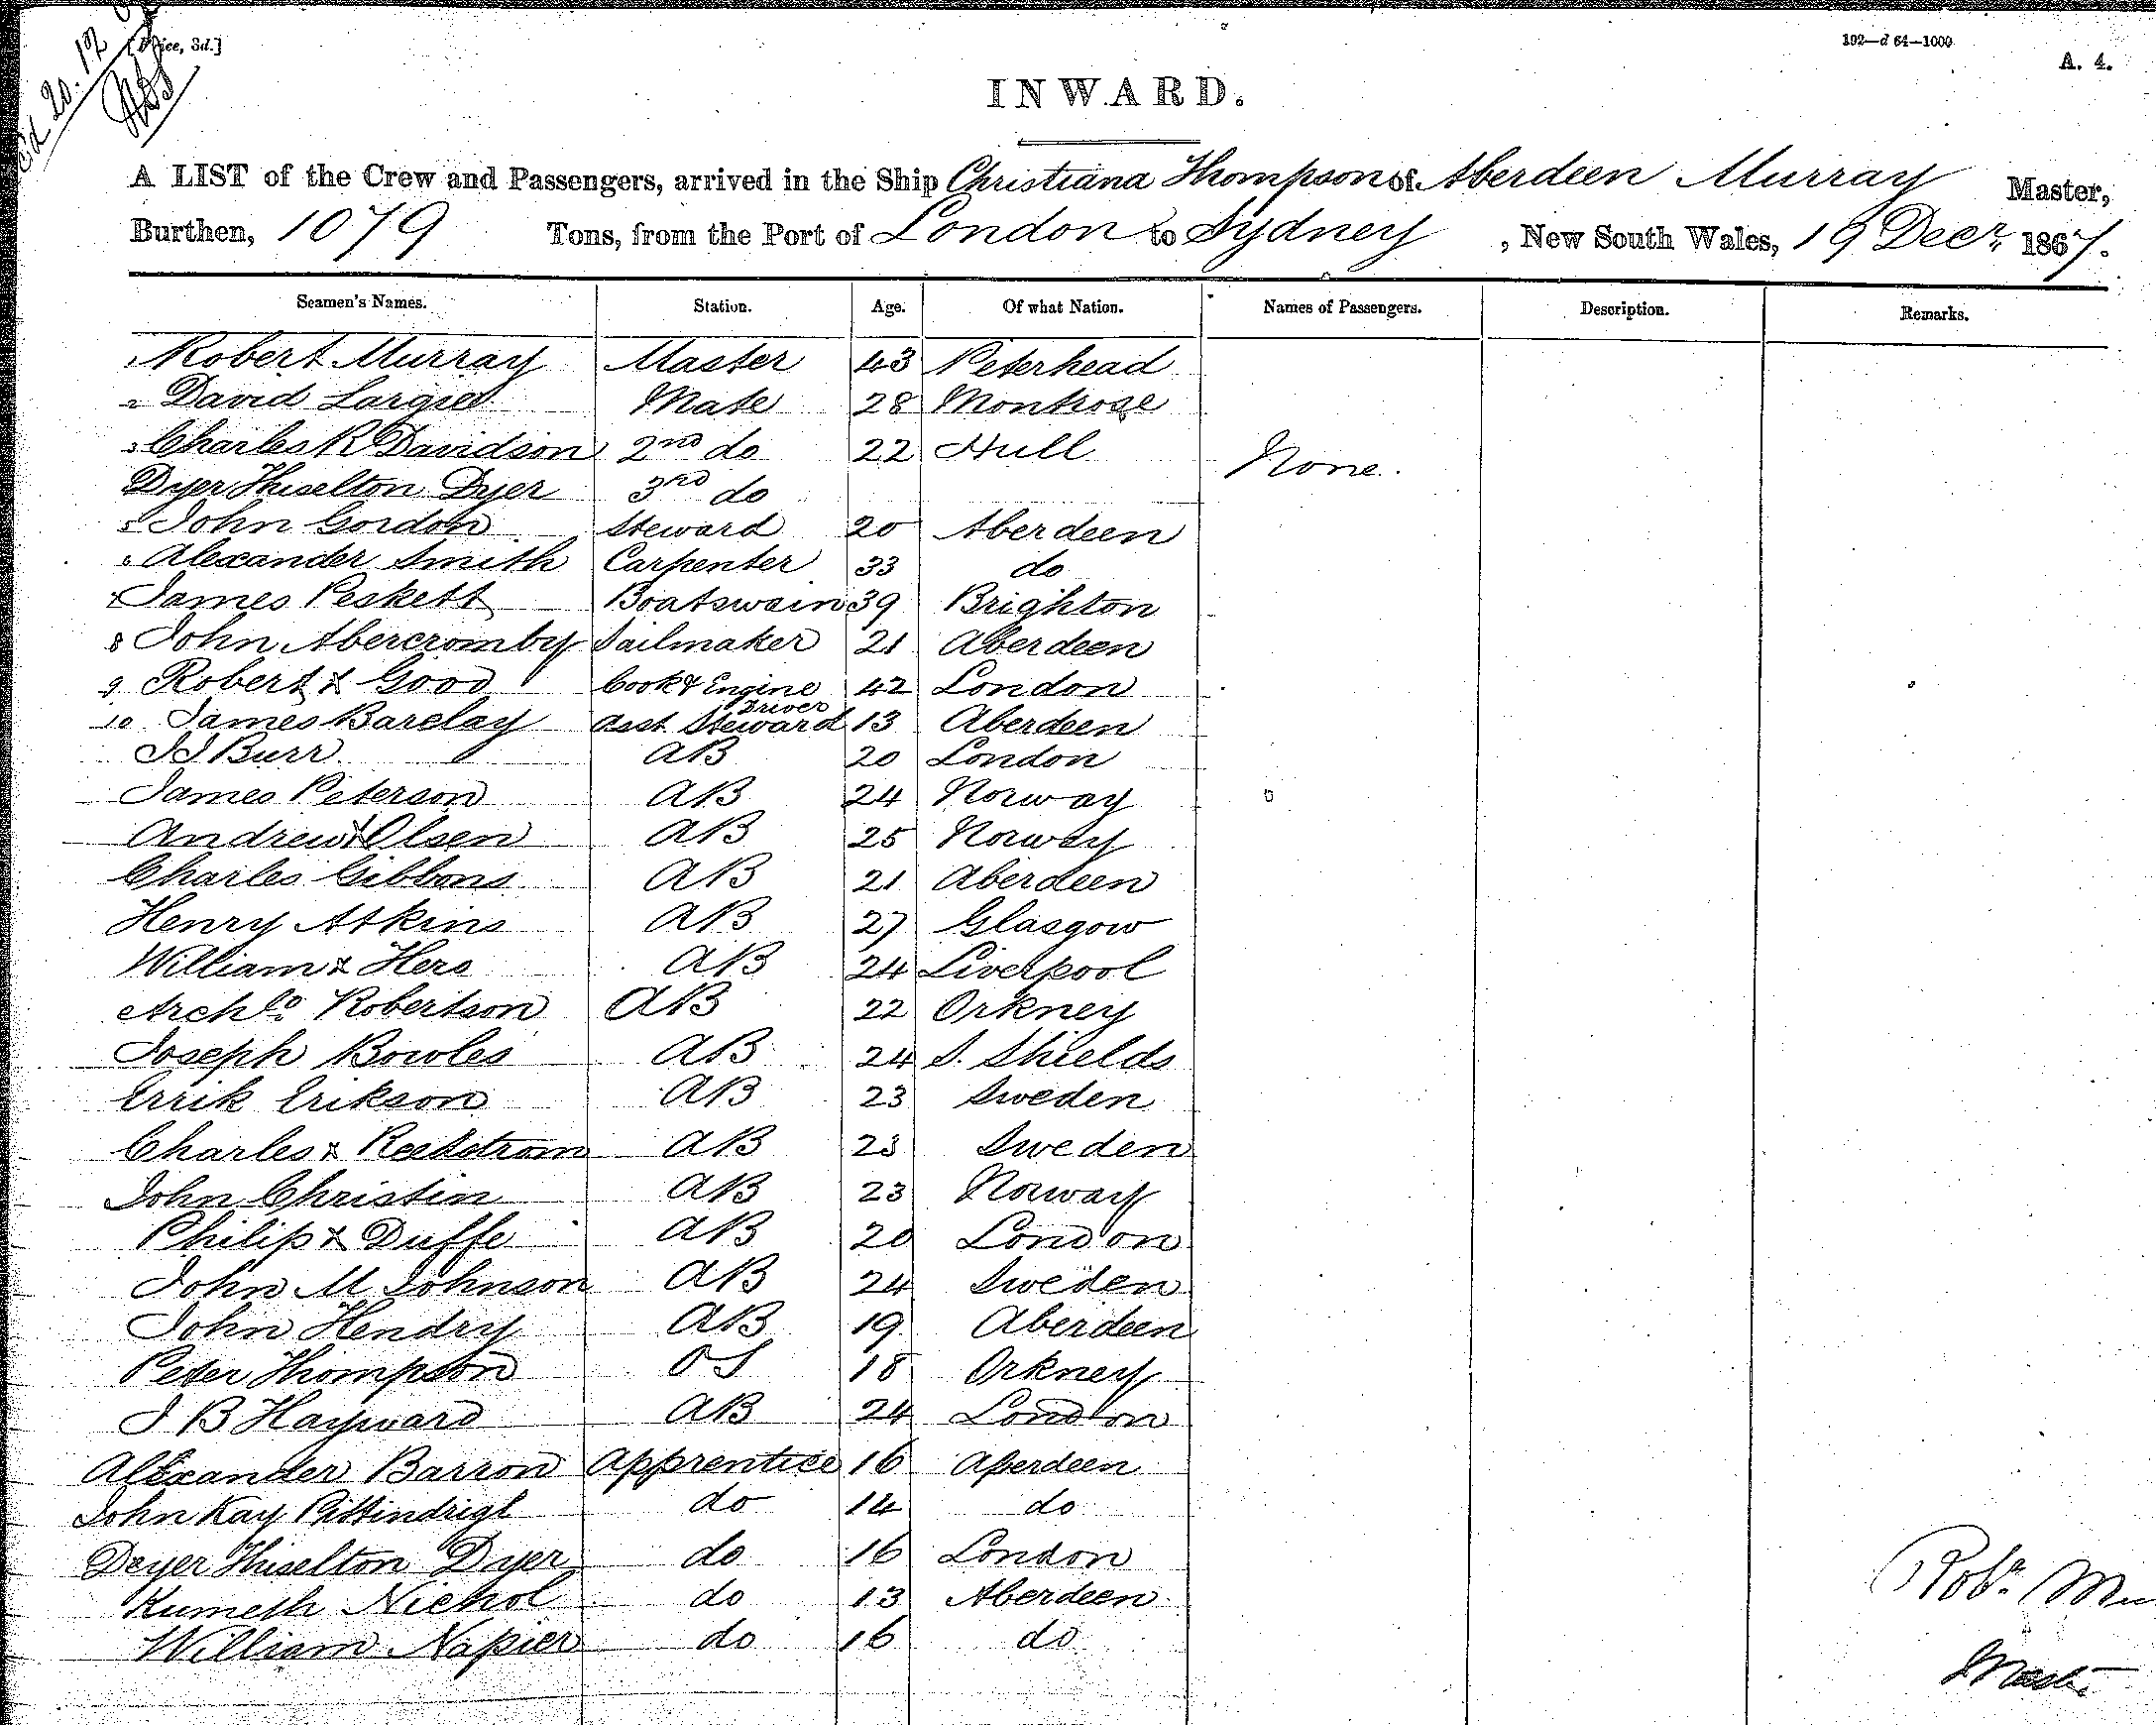 [Price, 3d.]
192—d 64—1000
A. 4.
20. 12
INWARD.
A LIST of the Crew and Passengers, arrived in the Ship Christiana Thompson of Aberdeen Murray Master,
Burthen, 1079 Tons, from the Port of London to Sydney, New South Wales, 19 Decr. 1867.
Seamen's Names. Station. Age. Of what Nation. Names of Passengers. Description. Remarks.
1 Robert Murray Master 43 Peterhead
2 David Largie Mate 28 Montrose
3 Charles R Davidson 2nd do 22 Hull None.
Dyer Thiselton Dyer 3rd do
5 John Gordon Steward 20 Aberdeen
6 Alexander Smith Carpenter 33 do
7 James Peskett Boatswain 39 Brighton
8 John Abercromby Sailmaker 21 Aberdeen
9 Robert x Good Cook & Engine Driver 42 London
10 James Barclay Asst Steward 13 Aberdeen
JJ Burr AB 20 London
James Peterson AB 24 Norway
Andrew x Olsen AB 25 Norway
Charles Gibbons AB 21 Aberdeen
Henry Atkins AB 27 Glasgow
William x Hers AB 24 Liverpool
Archd. Robertson AB 22 Orkney
Joseph Bowles AB 24 S. Shields
Errik Erikson AB 23 Sweden
Charles x AB 23 Sweden
John Christin AB 23 Norway
Philip x Duffe AB 20 London
John M Johnson AB 24 Sweden
John Hendry AB 19 Aberdeen
Peter Thompson OS 18 Orkney
J B Hayward AB 24 London
Alexander Barron Apprentice 16 Aberdeen
John Kay Pittindrigh do 14 do
Dyer Thiselton Dyer do 16 London
Kumeth Nichol do 13 Aberdeen
William Napier do 16 do
Robt. Mu
Master